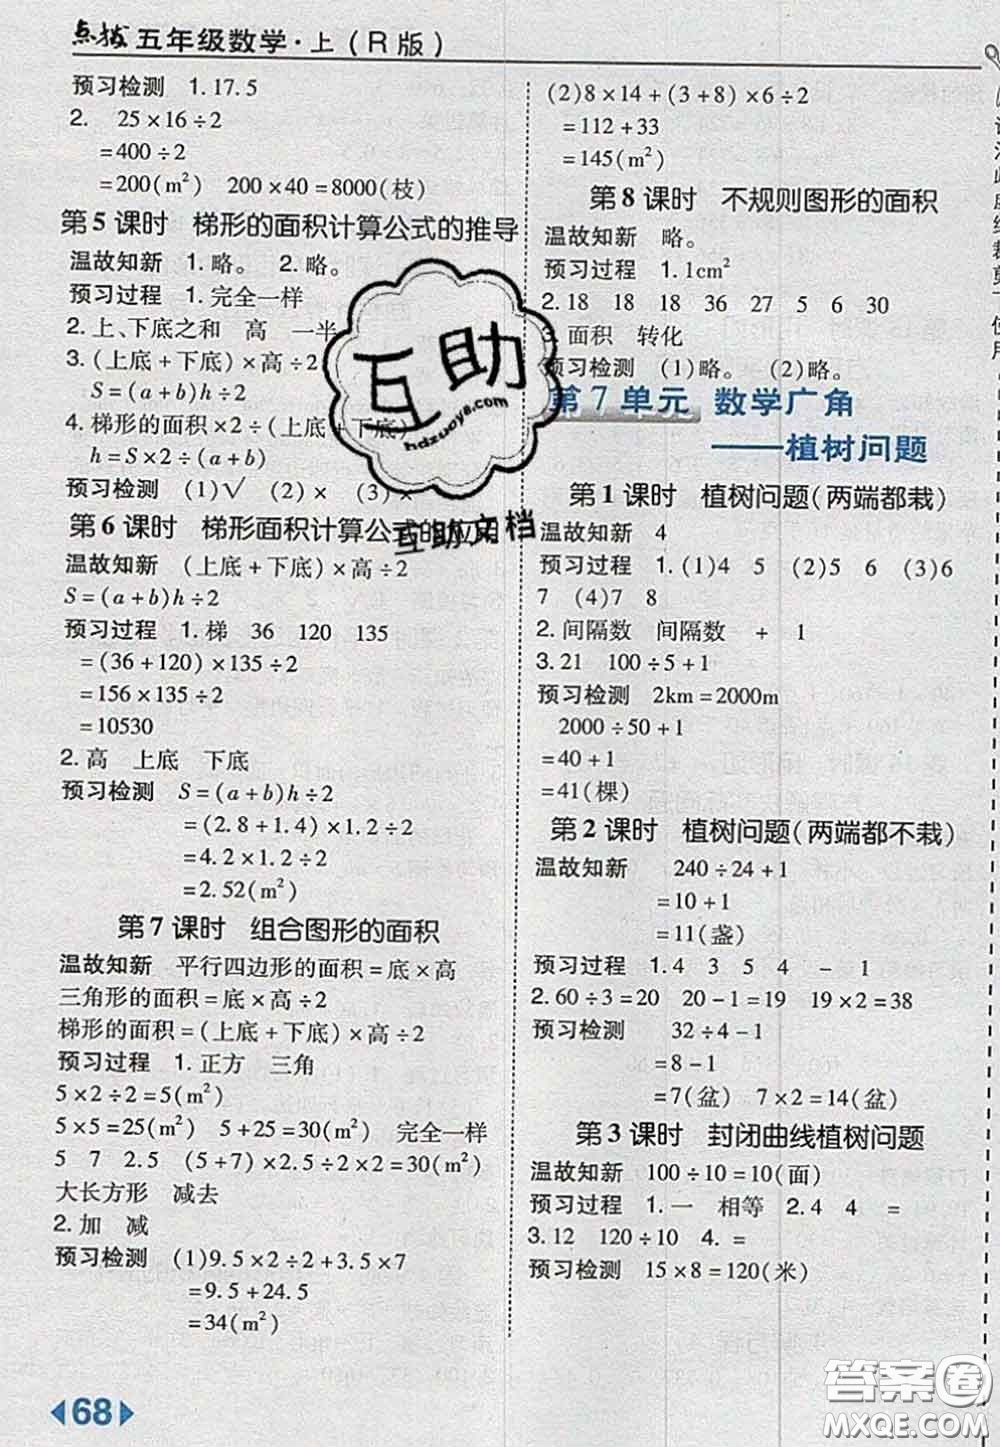 点拨 五年级数学·上(R版)
预习检测 1. 17.5
2. 25×16÷2
=400÷2
=200(m²) 200×40=8000(枝)
第5课时 梯形的面积计算公式的推导
温故知新 1. 略。 2. 略。
预习过程 1. 完全一样
2. 上、下底之和 高 一半
3. (上底+下底)×高÷2
S=(a+b)h÷2
4. 梯形的面积×2÷(上底+下底)
h=S×2÷(a+b)
预习检测 (1)√ (2)× (3)×
第6课时 梯形面积计算公式的应用
温故知新 (上底+下底)×高÷2
S=(a+b)h÷2
预习过程 1. 梯 36 120 135
=(36+120)×135÷2
=156×135÷2
=10530
2. 高 上底 下底
预习检测 S=(a+b)h÷2
=(2.8+1.4)×1.2÷2
=4.2×1.2÷2
=2.52(m²)
第7课时 组合图形的面积
温故知新 平行四边形的面积=底×高
三角形的面积=底×高÷2
梯形的面积=(上底+下底)×高÷2
预习过程 1. 正方 三角
5×2÷2=5(m²)
5×5=25(m²) 5+25=30(m²) 完全一样
5 7 2.5 (5+7)×2.5÷2×2=30(m²)
大长方形 减去
2. 加 减
预习检测 (1)9.5×2÷2+3.5×7
=9.5+24.5
=34(m²)
68
(2)8×14+(3+8)×6÷2
=112+33
=145(m²)
第8课时 不规则图形的面积
温故知新 略。
预习过程 1. 1cm²
2. 18 18 18 36 27 5 6 30
3. 面积 转化
预习检测 (1)略。 (2)略。
第7单元 数学广角
——植树问题
第1课时 植树问题(两端都栽)
温故知新 4
预习过程 1. (1)4 5 (2)5 6 (3)6
7 (4)7 8
2. 间隔数 间隔数 + 1
3. 21 100÷5+1
预习检测 2km=2000m
2000÷50+1
=40+1
=41(棵)
第2课时 植树问题(两端都不栽)
温故知新 240÷24+1
=10+1
=11(盏)
预习过程 1. 4 3 5 4 - 1
2. 60÷3=20 20-1=19 19×2=38
预习检测 32÷4-1
=8-1
=7(盆) 7×2=14(盆)
第3课时 封闭曲线植树问题
温故知新 100÷10=10(面)
预习过程 1. 一 相等 2. 4 4 =
3. 12 120÷10 4. =
预习检测 15×8=120(米)
互助
hdzuoye.com
互助文档
答案圈
MXQE.COM